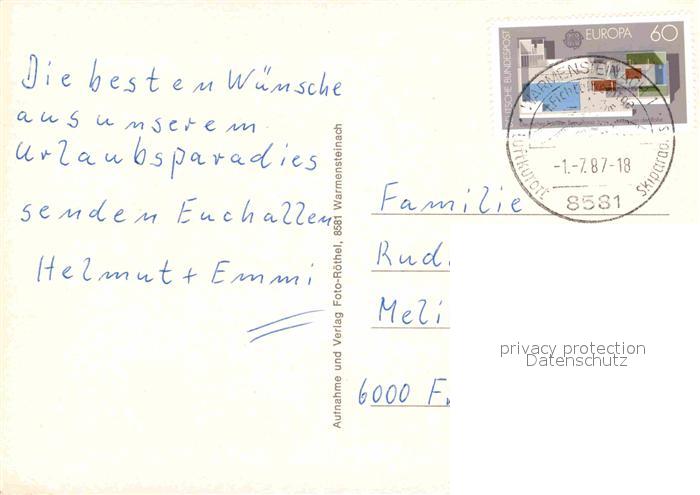 Die besten Wünsche
aus unserem
Urlaubsparadies
senden Euch allen
Helmut + Emmi
Aufnahme und Verlag Foto-Röthel, 8581 Warmensteinach
DEUTSCHE BUNDESPOST
EUROPA 60
WARMENSTEINACH
Luftkurort
-1.-7.87-18
Skiparad.
8581
Familie
Rud.
Meli
6000 F
privacy protection
Datenschutz